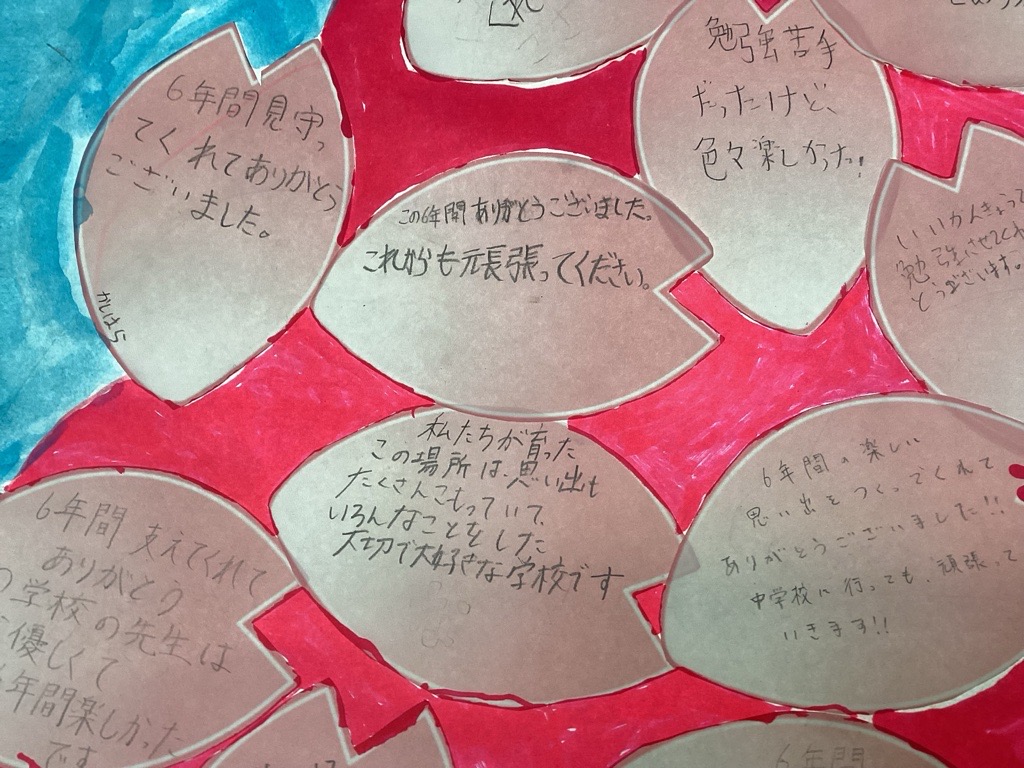 6年間見守っ
てくれてありがとう
ございました。
かしはら
この6年間ありがとうございました。
これからも元張張ってください。
勉強苦手
だったけど、
色々楽しかった!
いいかんきょうで
勉強させてくれ
とうございます。
私たちが育った
この場所は思い出も
たくさんこもっていて、
いろんなことをした
大切で大好きな学校です
6年間の楽しい
思い出をつくってくれて
ありがとうございました!!
中学校に行っても、頑張って
いきます!!
6年間支えてくれて
ありがとう
の学校の先生は
優しくて
年間楽しかった
です
6年間